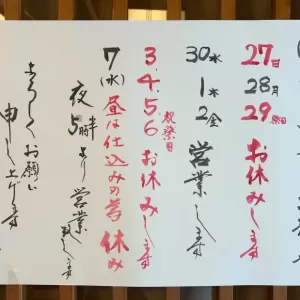 27日
28月 お休みします
29祭日
30水
1木 営業いたします
2金
3.4.5.6 祝祭日 お休みします
7(水) 昼は仕込みの為 休み
夜5時半より営業致します
よろしくお願い
申し上げます